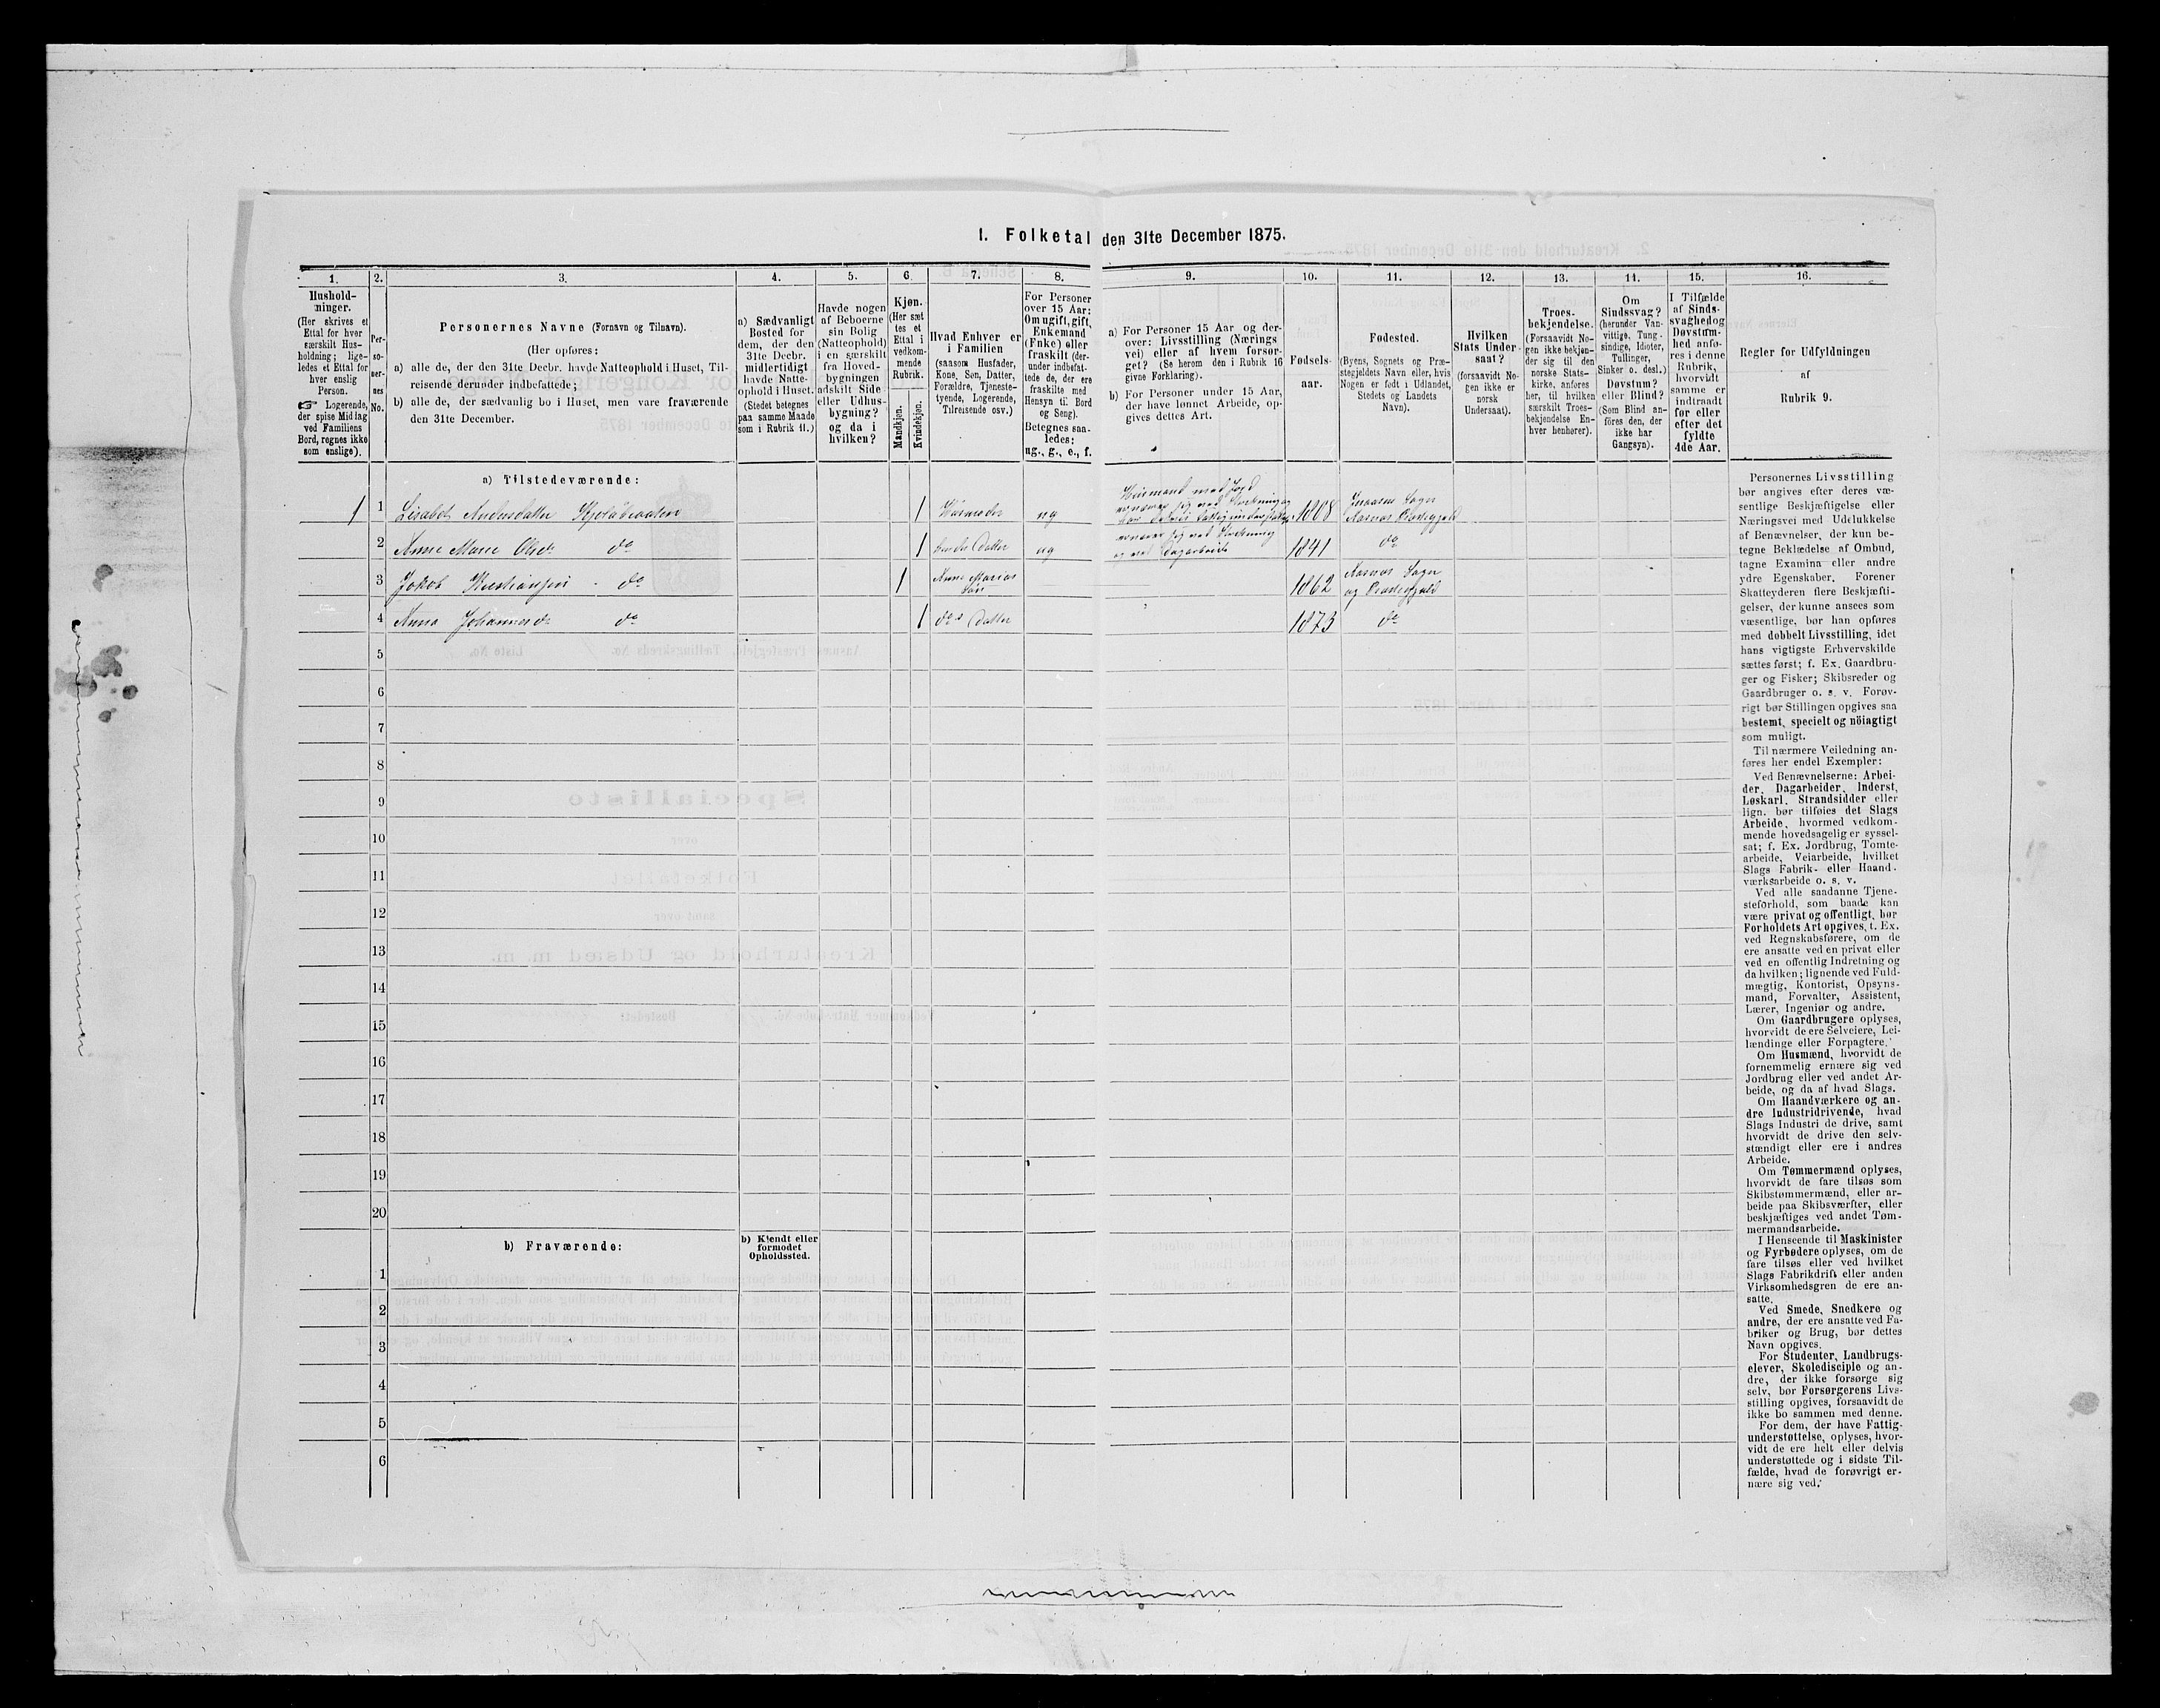 1. Folketal den 31te December 1875.
1.
Hushold-
ninger.
(Her skrives et
Ettal for hver
særskilt Hus-
holdning; lige-
ledes et Ettal for
hver enslig
Person.
☞ Logerende,
der spise Middag
ved Familiens
Bord, regnes ikke
som enslige).
2.
Per-
so-
ner-
nes
No.
3.
Personernes Navne (Fornavn og Tilnavn).
(Her opføres:
a) alle de, der den 31te Decbr. havde Natteophold i Huset, Til-
reisende derunder indbefattede;
b) alle de, der sædvanlig bo i Huset, men vare fraværende
den 31te December.
4.
a) Sædvanligt
Bosted for
dem, der den
31te Decbr.
midlertidigt
havde Natte-
ophold i Huset.
(Stedet betegnes
paa samme Maade
som i Rubrik 11.)
5.
Havde nogen
af Beboerne
sin Bolig
(Natteophold)
i en særskilt
fra Hoved-
bygningen
adskilt Side
eller Udhus-
bygning?
og da i
hvilken?
6.
Kjøn.
(Her sæt
tes et
Ettal i
vedkom-
mende
Rubrik.
Mandkjøn.
Kvindekjøn.
7.
Hvad Enhver er
i Familien
(saasom Husfader,
Kone, Søn, Datter,
Forældre, Tjeneste-
tyende, Logerende,
Tilreisende osv.)
8.
For Personer
over 15 Aar:
Om ugift, gift,
Enkemand
(Enke) eller
fraskilt (der-
under indbefat-
tede de, der ere
fraskilte med
Hensyn til Bord
og Seng).
Betegnes saa-
ledes:
ug., g., e., f.
9.
a) For Personer 15 Aar og der-
over: Livsstilling (Nærings
vei) eller af hvem forsør-
get? (Se herom den i Rubrik 16
givne Forklaring).
b) For Personer under 15 Aar,
der have lønnet Arbeide, op-
gives dettes Art.
10.
Fødsels-
aar.
11.
Fødested.
(Byens, Sognets og Præ-
stegjeldets Navn eller, hvis
Nogen er født i Udlandet,
Stedets og Landets
Navn).
12.
Hvilken
Stats Under-
saat?
(forsaavidt No-
gen ikke er
norsk
Undersaat).
13.
Troes-
bekjendelse.
(Forsaavidt No-
gen ikke bekjen-
der sig til den
norske Stats-
kirke, anføres
her, til hvilken
særskilt Troes-
bekjendelse En-
hver henhører).
14.
Om
Sindssvag?
(herunder Van-
vittige, Tung-
sindige, Idioter,
Tullinger,
Sinker o. desl.)
Døvstum?
eller Blind?
(Som Blind an-
føres den, der
ikke har
Gangsyn).
15.
I Tilfælde
af Sinds-
svaghed og
Døvstum-
hed anfø-
res i denne
Rubrik,
hvorvidt
samme er
indtraadt
før eller
efter det
fyldte
4de Aar.
16.
Regler for Udfyldningen
af
Rubrik 9.
a) Tilstedeværende:
1 1 Lisabet Andersdatter 1 ug Huusmand med Jord 1808
2 Anne Marie Olsdr do 1 Datter ug 1841 do
3 Jakob Kristiansen do 1 Anne Maries Søn 1862 Aasnes Sogn og Præstegjeld
4 Anna Johannesdr do 1 dos Datter 1873 do
5
6
7
8
9
10
11
12
13
14
15
16
17
18
19
20
b) Fraværende:
b) Kjendt eller
formodet
Opholdssted.
1
2
3
4
5
6
Personernes Livsstilling
bør angives efter deres væ-
sentlige Beskjæftigelse eller
Næringsvei med Udelukkelse
af Benævnelser, der kun be-
tegne Beklædelse af Ombud,
tagne Examina eller andre
ydre Egenskaber. Forener
Skatteyderen flere Beskjæfti-
gelser, der kunne ansees som
væsentlige, bør han opføres
med dobbelt Livsstilling, idet
hans vigtigste Erhvervskilde
sættes først; f. Ex. Gaardbru-
ger og Fisker; Skibsreder og
Gaardbruger o. s. v. Forøv-
rigt bør Stillingen opgives saa
bestemt, specielt og nöiagtigt
som muligt.
Til nærmere Veiledning an-
føres her endel Exempler:
Ved Benævnelserne: Arbei-
der, Dagarbeider, Inderst,
Løskarl, Strandsidder eller
lign. bør tilføies det Slags
Arbeide, hvormed vedkom-
mende hovedsagelig er syssel-
sat; f. Ex. Jordbrug, Tomte-
arbeide, Veiarbeide, hvilket
Slags Fabrik- eller Haand-
værksarbeide o. s. v.
Ved alle saadanne Tjene-
steforhold, som baade kan
være privat og offentligt, bør
Forholdets Art opgives, t. Ex.
ved Regnskabsførere, om de
ere ansatte ved en privat eller
ved en offentlig Indretning og
da hvilken; lignende ved Fuld-
mægtig, Kontorist, Opsyns-
mand, Forvalter, Assistent,
Lærer, Ingeniør og andre.
Om Gaardbrugere oplyses,
hvorvidt de ere Selveiere, Lei-
lændinge eller Forpagtere.
Om Husmænd, hvorvidt de
fornemmelig ernære sig ved
Jordbrug eller ved andet Ar-
beide, og da af hvad Slags.
Om Haandværkere og an-
dre Industridrivende, hvad
Slags Industri de drive, samt
hvorvidt de drive den selv-
stændigt eller ere i andres
Arbeide.
Om Tømmermænd oplyses,
hvorvidt de fare tilsøs som
Skibstømmermænd, eller ar-
beide paa Skibsværfter, eller
beskjæftiges ved andet Tøm-
mermandsarbeide.
I Henseende til Maskinister
og Fyrbødere oplyses, om de
fare tilsøs eller ved hvilket
Slags Fabrikdrift eller anden
Virksomhedsgren de ere an-
satte.
Ved Smede, Snedkere og
andre, der ere ansatte ved Fa-
briker og Brug, bør dettes
Navn opgives.
For Studenter, Landbrugs-
elever, Skoledisciple og an-
dre, der ikke forsørge sig
selv, bør Forsørgerens Livs-
stilling opgives, forsaavidt de
ikke bo sammen med denne.
For dem, der have Fattig-
understøttelse, oplyses, hvor-
vidt de ere helt eller delvis
understøttede og i sidste Til-
fælde, hvad de forøvrigt er-
nære sig ved.